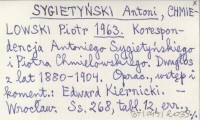 SYGIETYŃSKI Antoni, CHMIE-
LOWSKI Piotr 1963. Korespon-
dencja Antoniego Sygietyńskiego
i Piotra Chmielowskiego. Dwugłos
z lat 1880-1904. Oprac., wstęp i
koment.: Edward Kiernicki. -
Wrocław. Ss. 268, tabl. 12, err.,